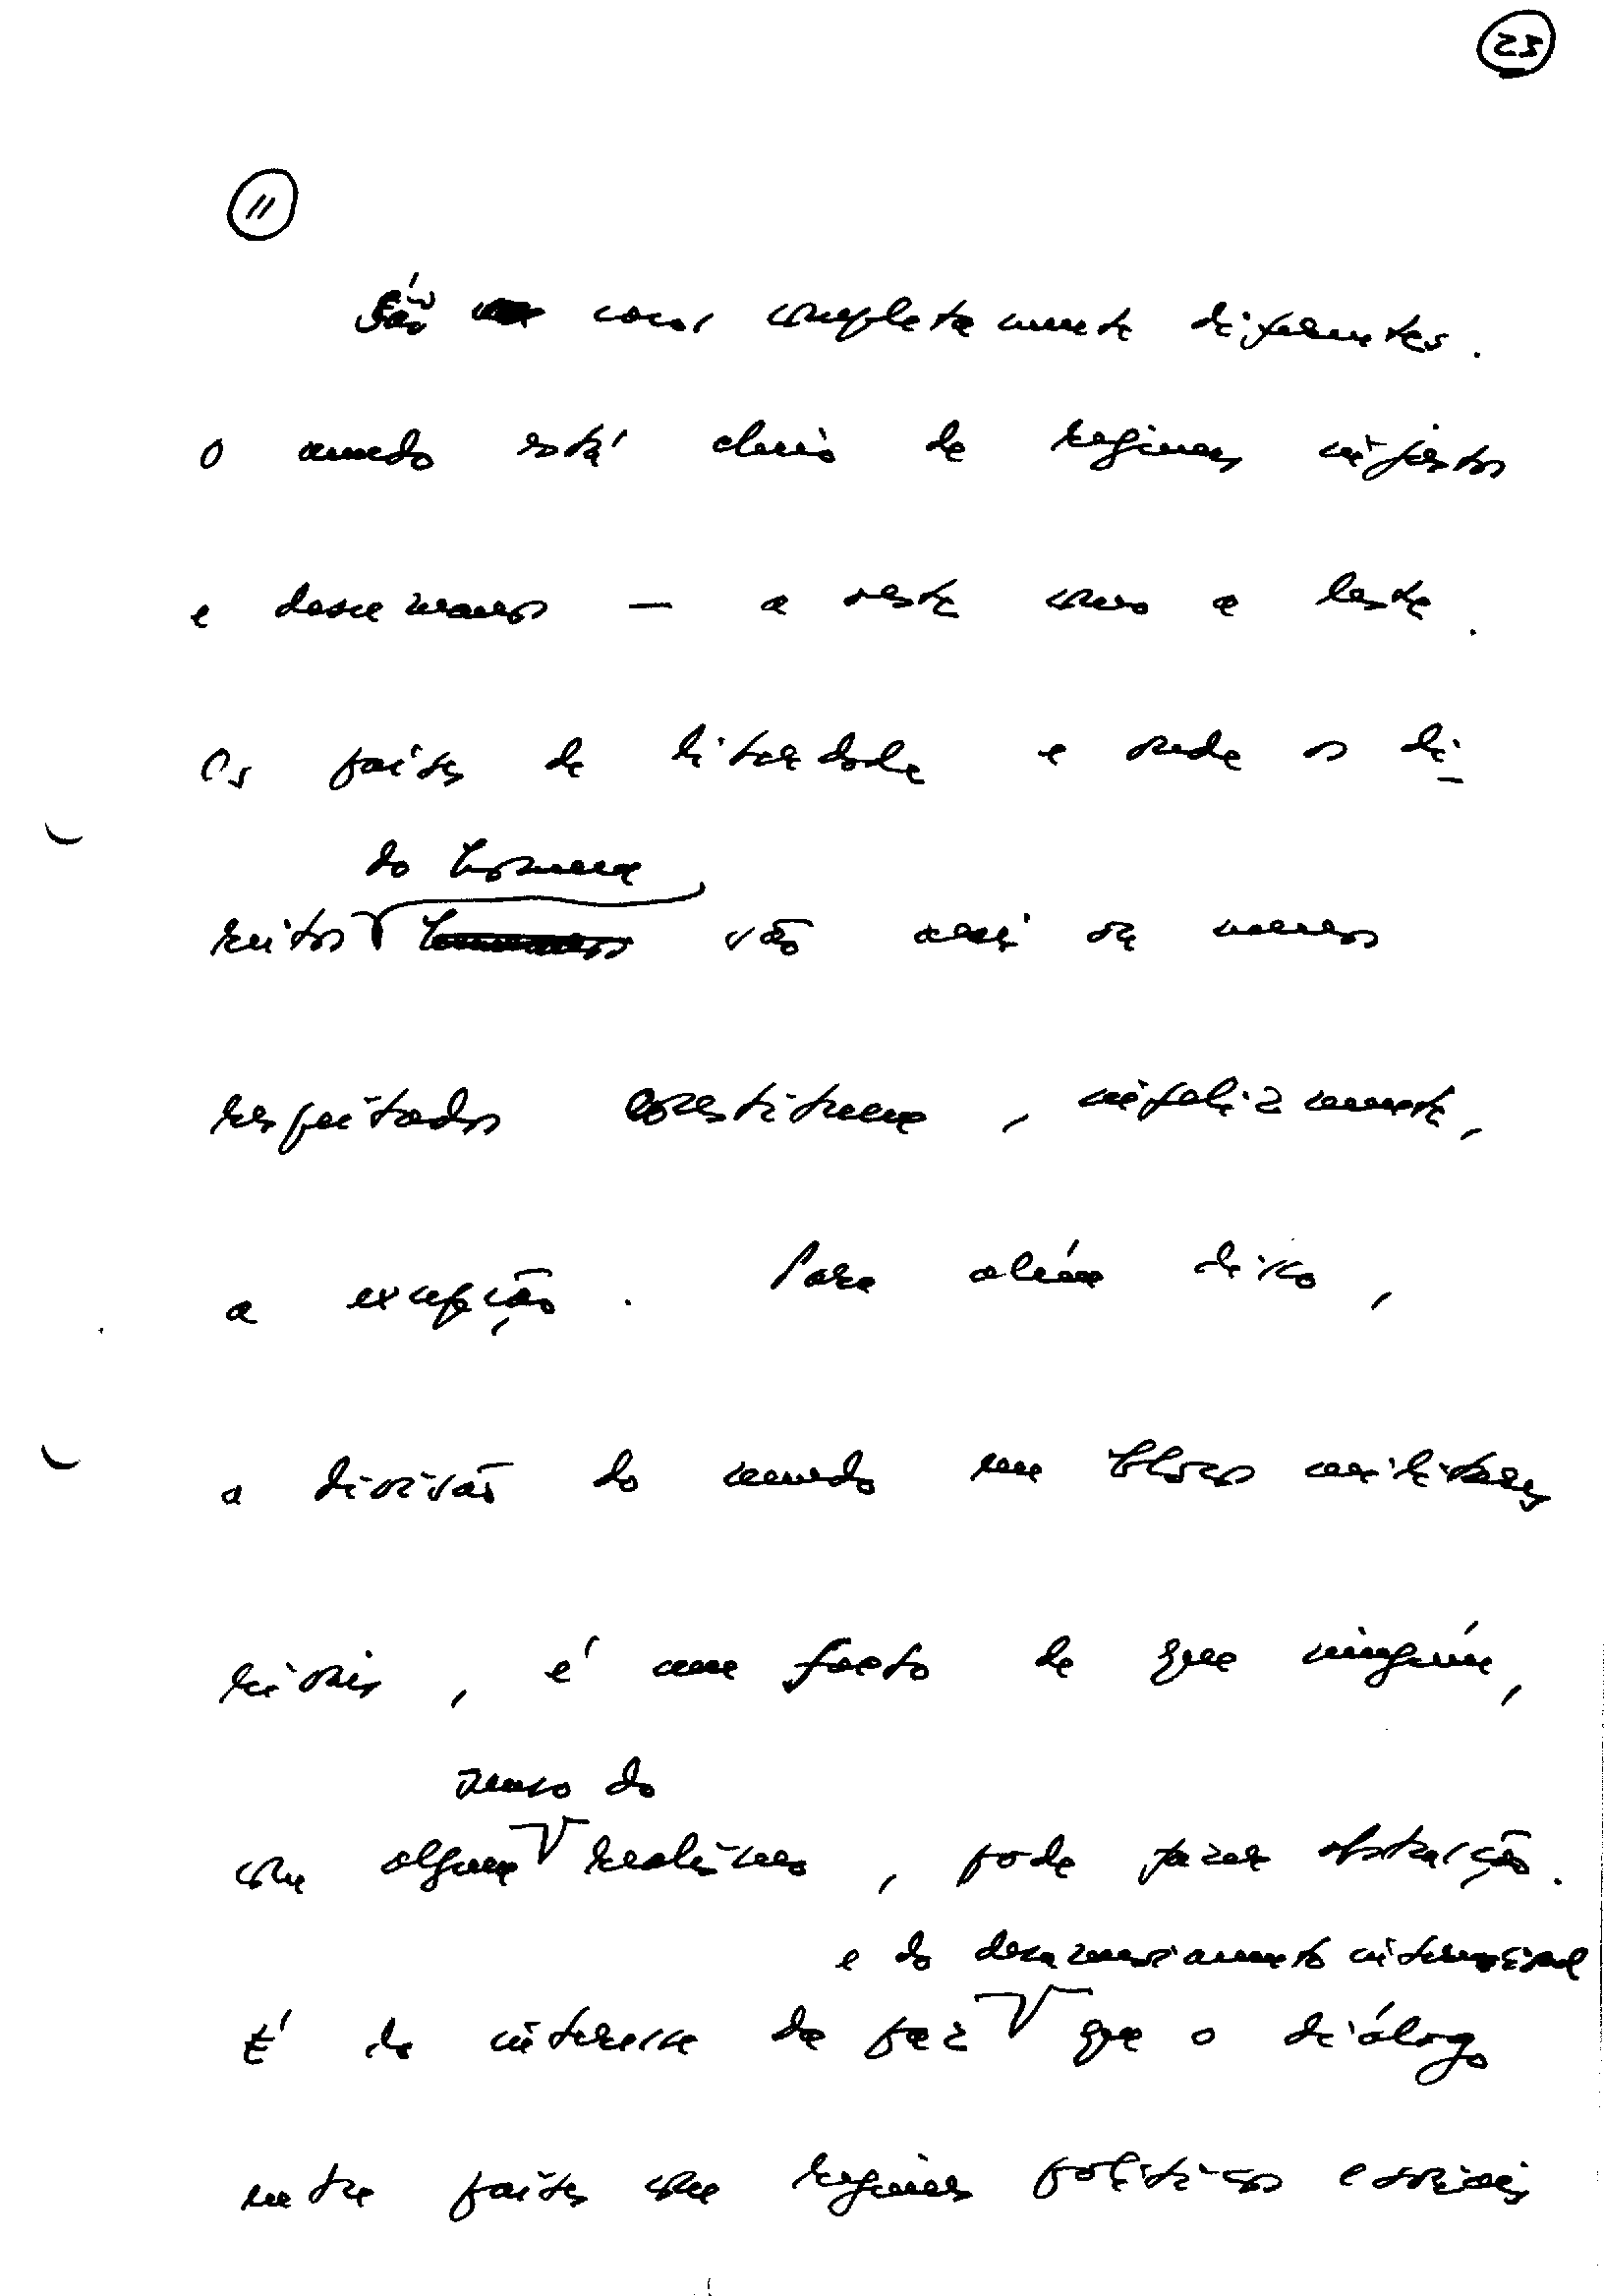 23
11
São casos completamente diferentes.
O mundo está cheio de regimes injustos
e desumanos — a oeste como a leste.
Os países de liberdade e onde os di-
do homem
reitos vão sendo ou menos
respeitados constituem, infelizmente,
a excepção. Para além disso,
a divisão do mundo em blocos militares
rivais, é um facto de que ninguém,
senso do
com algum realismo, pode fazer abstracção.
e do desanuviamento internacional
É do interesse da paz que o diálogo
entre países com regimes políticos e sociais